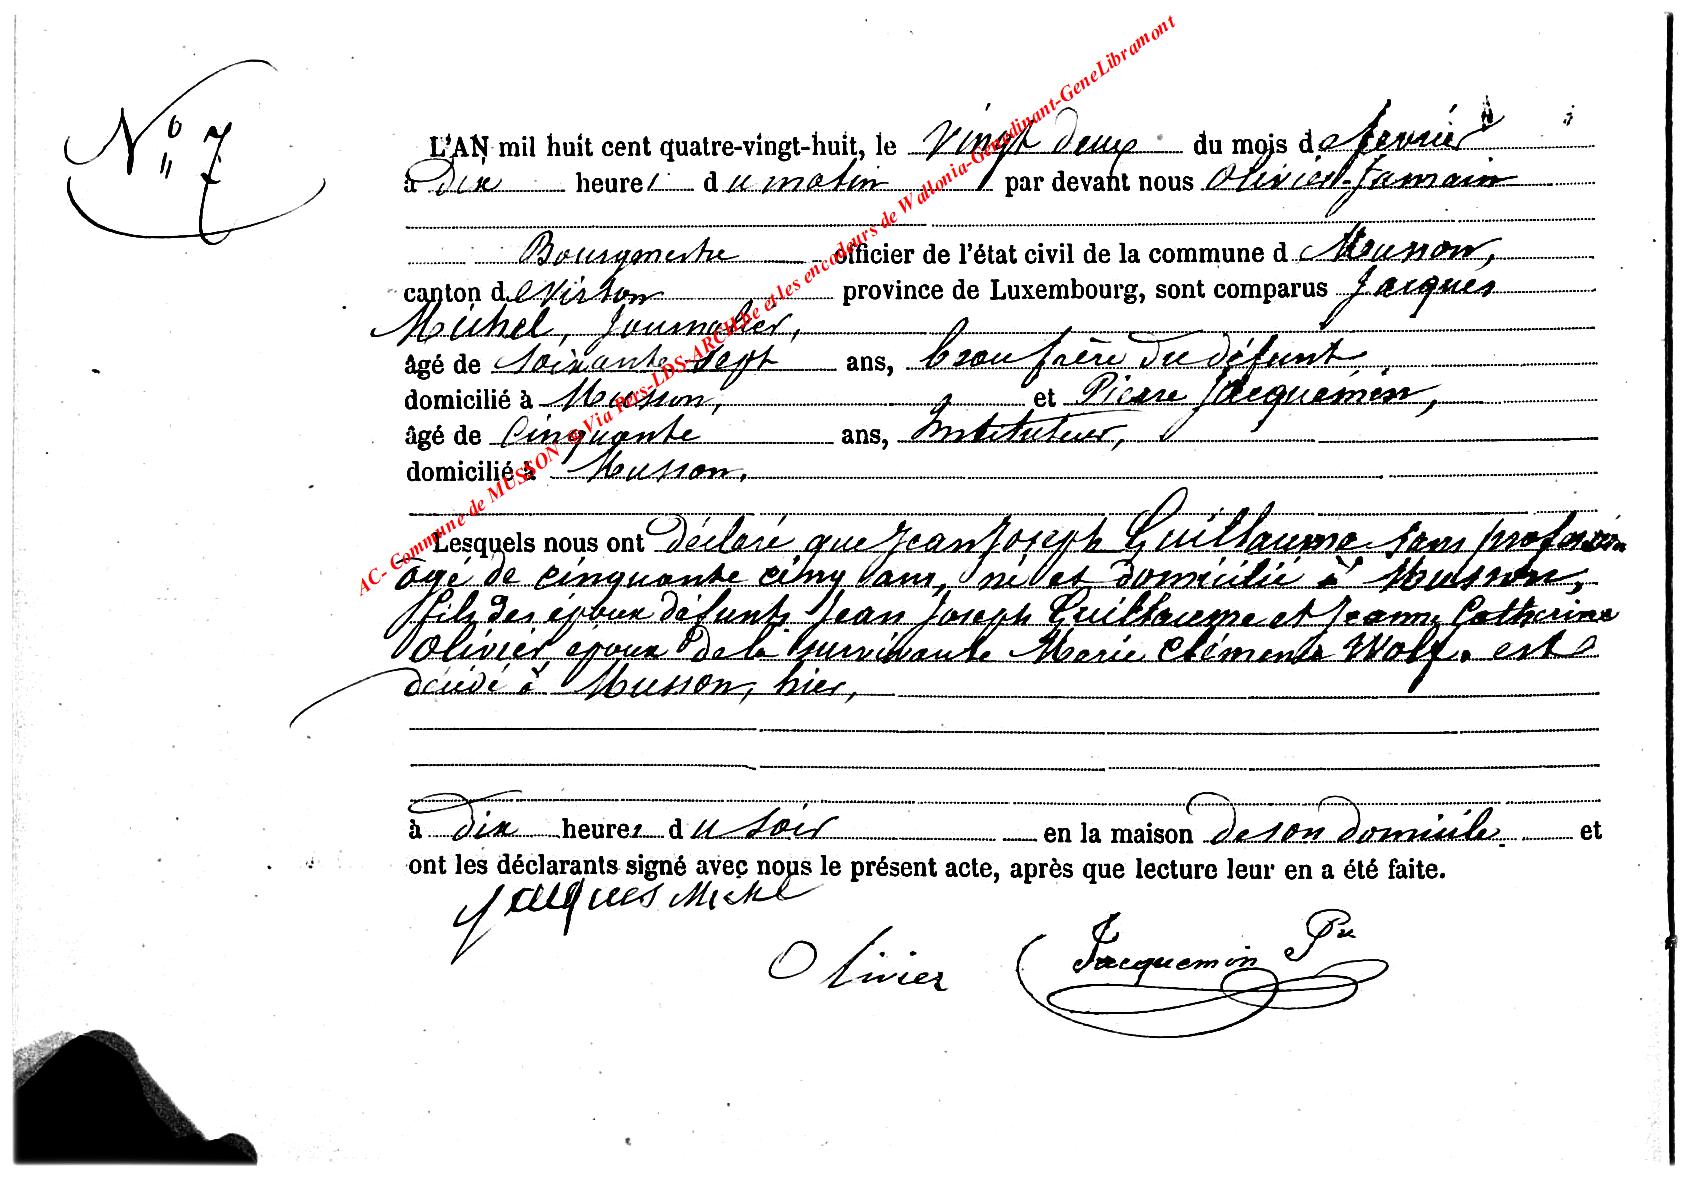 N° 7
L'AN mil huit cent quatre-vingt-huit, le vingt deux du mois de février
à dix heures du matin par devant nous Olivier-Jamain
Bourgmestre officier de l'état civil de la commune d Musson,
canton de Virton province de Luxembourg, sont comparus Jacques
Michel, Journalier,
âgé de soixante sept ans, beau frère du défunt
domicilié à Musson, et Pierre Jacquemin,
âgé de Cinquante ans, Instituteur,
domicilié à Musson.
Lesquels nous ont déclaré que Jean Joseph Guillaume sans profession
âgé de cinquante cinq ans, né et domicilié à Musson,
fils des époux défunts Jean Joseph Guillaume et Jeanne Catherine
Olivier, époux de la survivante Marie Clémence Wolf. est
décédé à Musson, hier,
à dix heures du soir en la maison de son domicile et
ont les déclarants signé avec nous le présent acte, après que lecture leur en a été faite.
Jacques Michel
Olivier
Jacquemin Pre
AC- Commune de MUSSON @ Via Pers-LDS-ARCH.be et les encodeurs de Wallonia-Genedinant-GeneLibramont